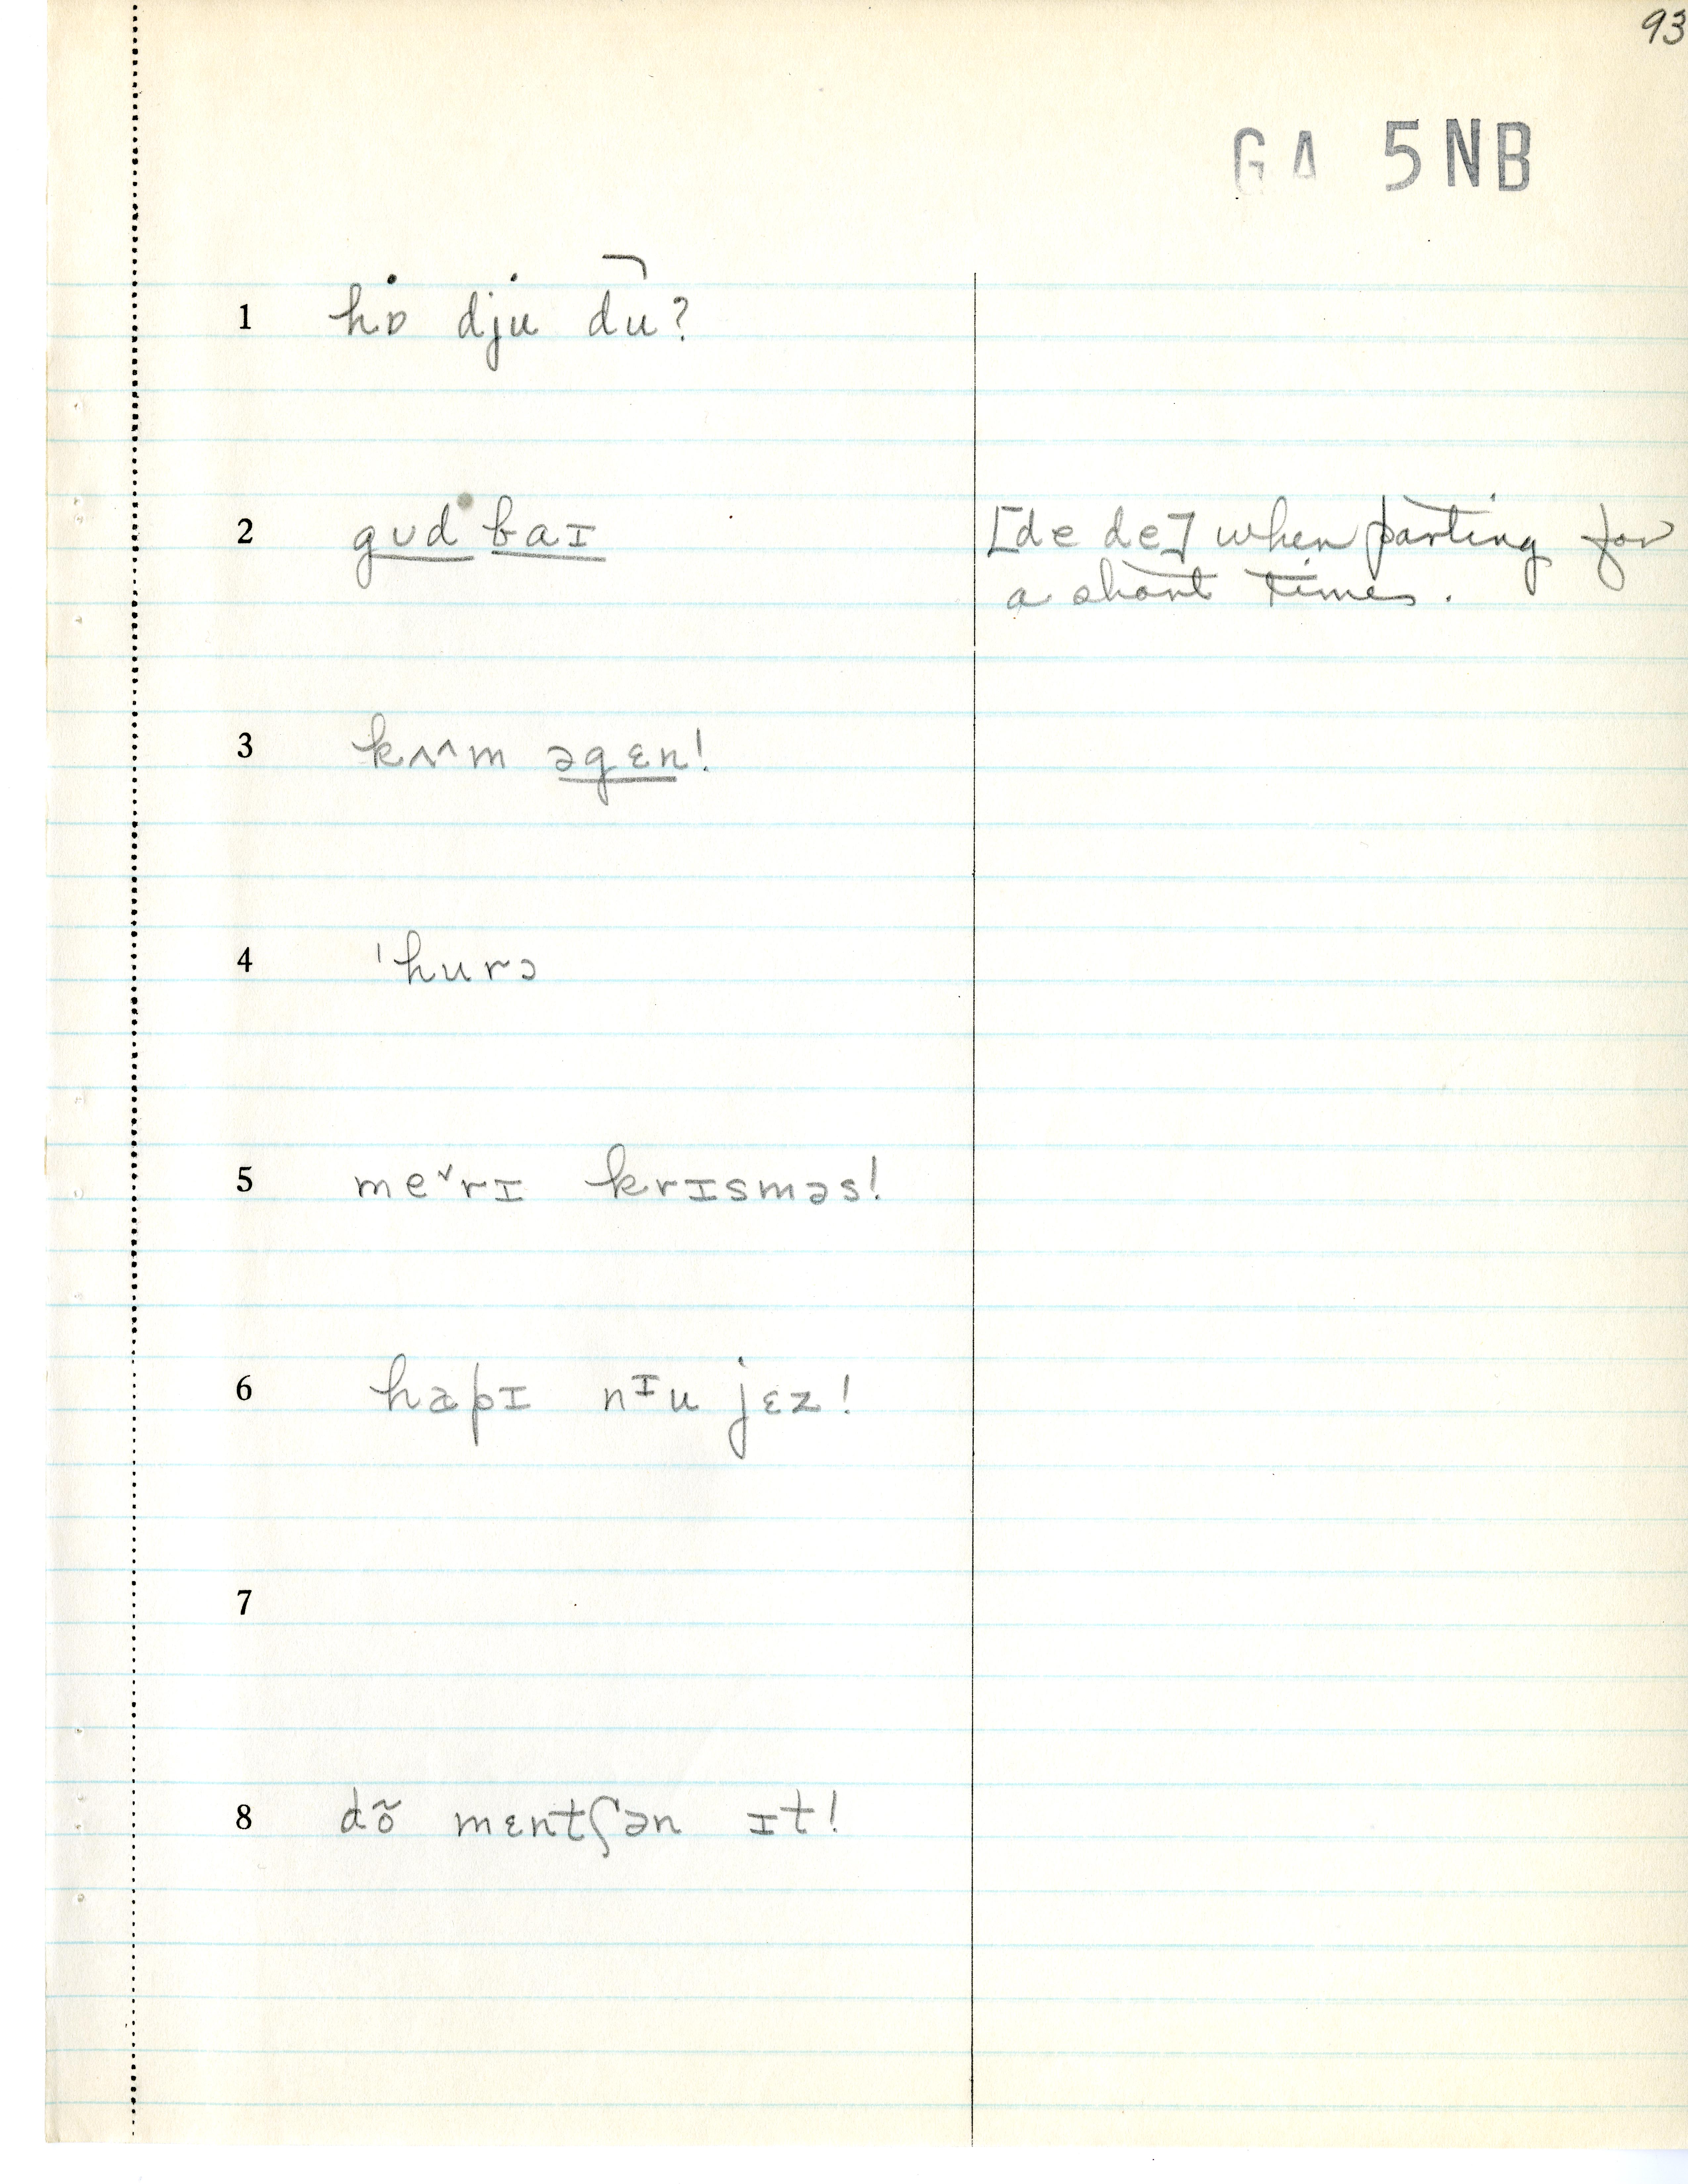 93
GA 5NB
1 hɒ dju du?
2 gʊd baɪ
[de de] when parting for
a short times.
3 kʌ^m əgɛn!
4 ˈhurɔ
5 meˇrɪ krɪsməs!
6 hapɪ nᶦu jɛz!
7
8 dõ mɛntʃən ɪt!